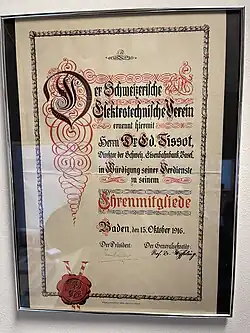 Der Schweizerische
Elektrotechnische Verein
ernennt hiermit
Herrn Dr. Ed. Tissot,
Direktor der Schweiz. Eisenbahnbank, Basel,
in Würdigung seiner Verdienste
zu seinem
Ehrenmitgliede
Baden, den 15. Oktober 1916.
Der Präsident: Der Generalsekretär:
Prof. Dr.